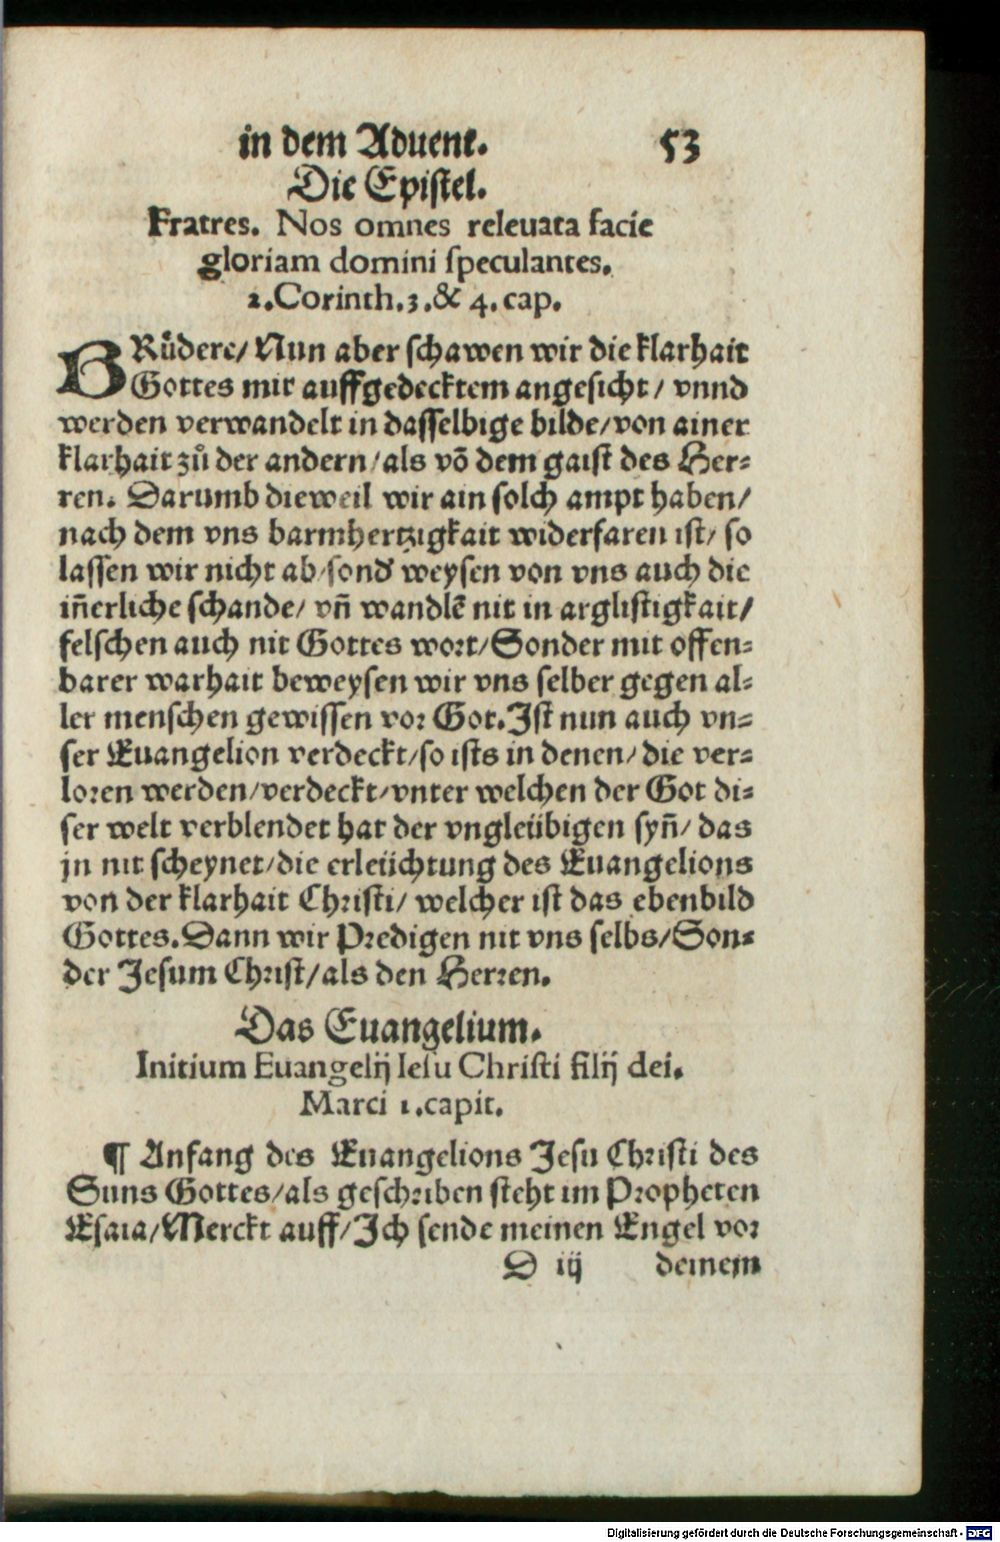 in dem Aduent. 53
Die Epistel.
Fratres. Nos omnes releuata facie
gloriam domini speculantes.
2.Corinth.3.& 4.cap.
BRůdere/ Nun aber schawen wir die klarhait
Gottes mit auffgedecktem angesicht/ vnnd
werden verwandelt in dasselbige bilde/von ainer
klarhait zů der andern/als võ dem gaist des Her⸗
ren. Darumb dieweil wir ain solch ampt haben/
nach dem vns barmhertzigkait widerfaren ist/ so
lassen wir nicht ab/sond̕ weysen von vns auch die
iñerliche schande/ vñ wandlẽ nit in arglistigkait/
felschen auch nit Gottes wort/Sonder mit offen⸗
barer warhait beweysen wir vns selber gegen al⸗
ler menschen gewissen vor Got.Ist nun auch vn⸗
ser Euangelion verdeckt/so ists in denen/die ver⸗
loren werden/verdeckt/vnter welchen der Got di⸗
ser welt verblendet hat der vngleübigen syñ/ das
jn nit scheynet/die erleüchtung des Euangelions
von der klarhait Christi/ welcher ist das ebenbild
Gottes.Dann wir Predigen nit vns selbs/Son⸗
der Jesum Christ/als den Herren.
Das Euangelium.
Initium Euangelij Iesu Christi filij dei.
Marci 1.capit.
¶ Anfang des Euangelions Jesu Christi des
Suns Gottes/als geschriben steht im Propheten
Esaia/Merckt auff/Ich sende meinen Engel vor
D iij deinem
Digitalisierung gefördert durch die Deutsche Forschungsgemeinschaft - DFG